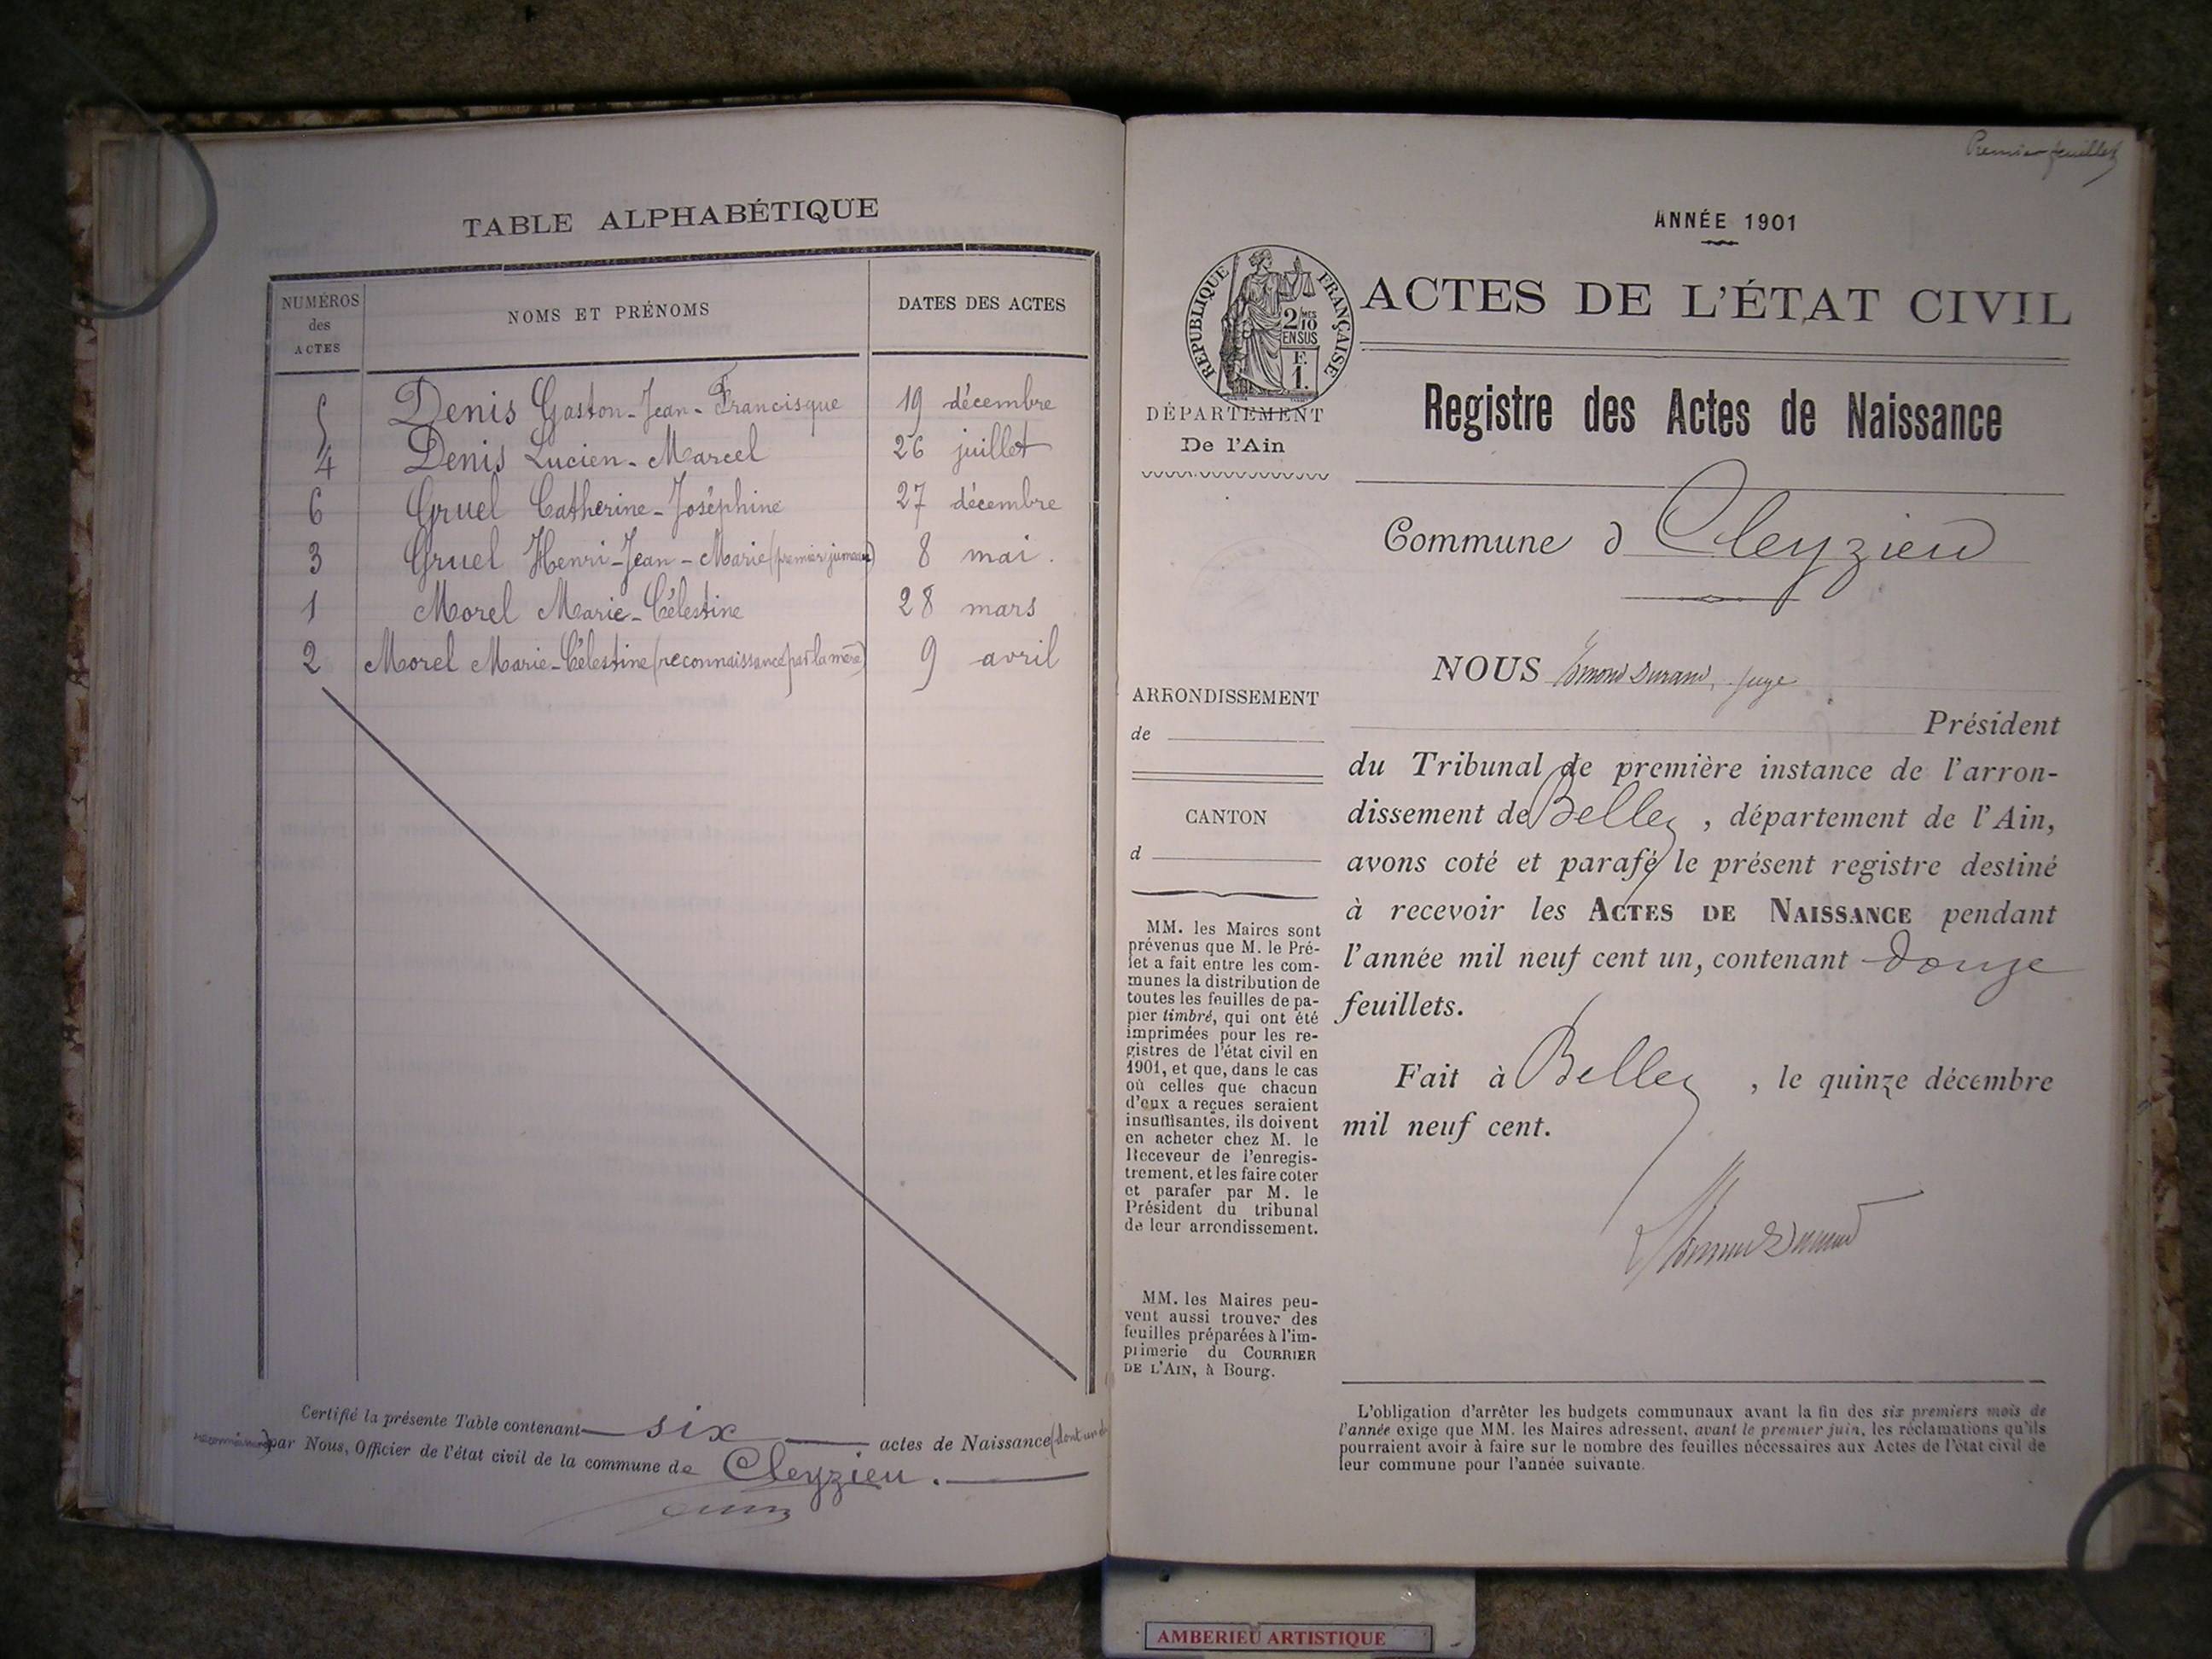 TABLE ALPHABÉTIQUE
NUMÉROS des ACTES
NOMS ET PRÉNOMS
DATES DES ACTES
5 Denis Gaston-Jean-Francisque 19 décembre
4 Denis Lucien-Marcel 26 juillet
6 Gruel Catherine-Joséphine 27 décembre
3 Gruel Henri-Jean-Marie (premier jumeau) 8 mai.
1 Morel Marie-Célestine 28 mars
2 Morel Marie-Célestine (reconnaissance par la mère) 9 avril
Certifié la présente Table contenant six actes de Naissance (dont un de
reconnaissance) par Nous, Officier de l'état civil de la commune de Cleyzieu.
Premier feuillet
ANNÉE 1901
RÉPUBLIQUE FRANÇAISE
2/10 MES
EN SUS
F.
1.
ACTES DE L'ÉTAT CIVIL
DÉPARTEMENT
De l'Ain
Registre des Actes de Naissance
Commune d Cleyzieu
NOUS Edmond Durand, juge
Président
du Tribunal de première instance de l'arron-
dissement de Belley, département de l'Ain,
avons coté et parafé le présent registre destiné
à recevoir les ACTES DE NAISSANCE pendant
l'année mil neuf cent un, contenant douze
feuillets.
Fait à Belley, le quinze décembre
mil neuf cent.
ARRONDISSEMENT
de
CANTON
d
MM. les Maires sont
prévenus que M. le Pré-
fet a fait entre les com-
munes la distribution de
toutes les feuilles de pa-
pier timbré, qui ont été
imprimées pour les re-
gistres de l'état civil en
1901, et que, dans le cas
où celles que chacun
d'eux a reçues seraient
insuffisantes, ils doivent
en acheter chez M. le
Receveur de l'enregis-
trement, et les faire coter
et parafer par M. le
Président du tribunal
de leur arrondissement.
MM. les Maires peu-
vent aussi trouver des
feuilles préparées à l'im-
primerie du COURRIER
DE L'AIN, à Bourg.
L'obligation d'arrêter les budgets communaux avant la fin des six premiers mois de
l'année exige que MM. les Maires adressent, avant le premier juin, les réclamations qu'ils
pourraient avoir à faire sur le nombre des feuilles nécessaires aux Actes de l'état civil de
leur commune pour l'année suivante.
AMBERIEU ARTISTIQUE